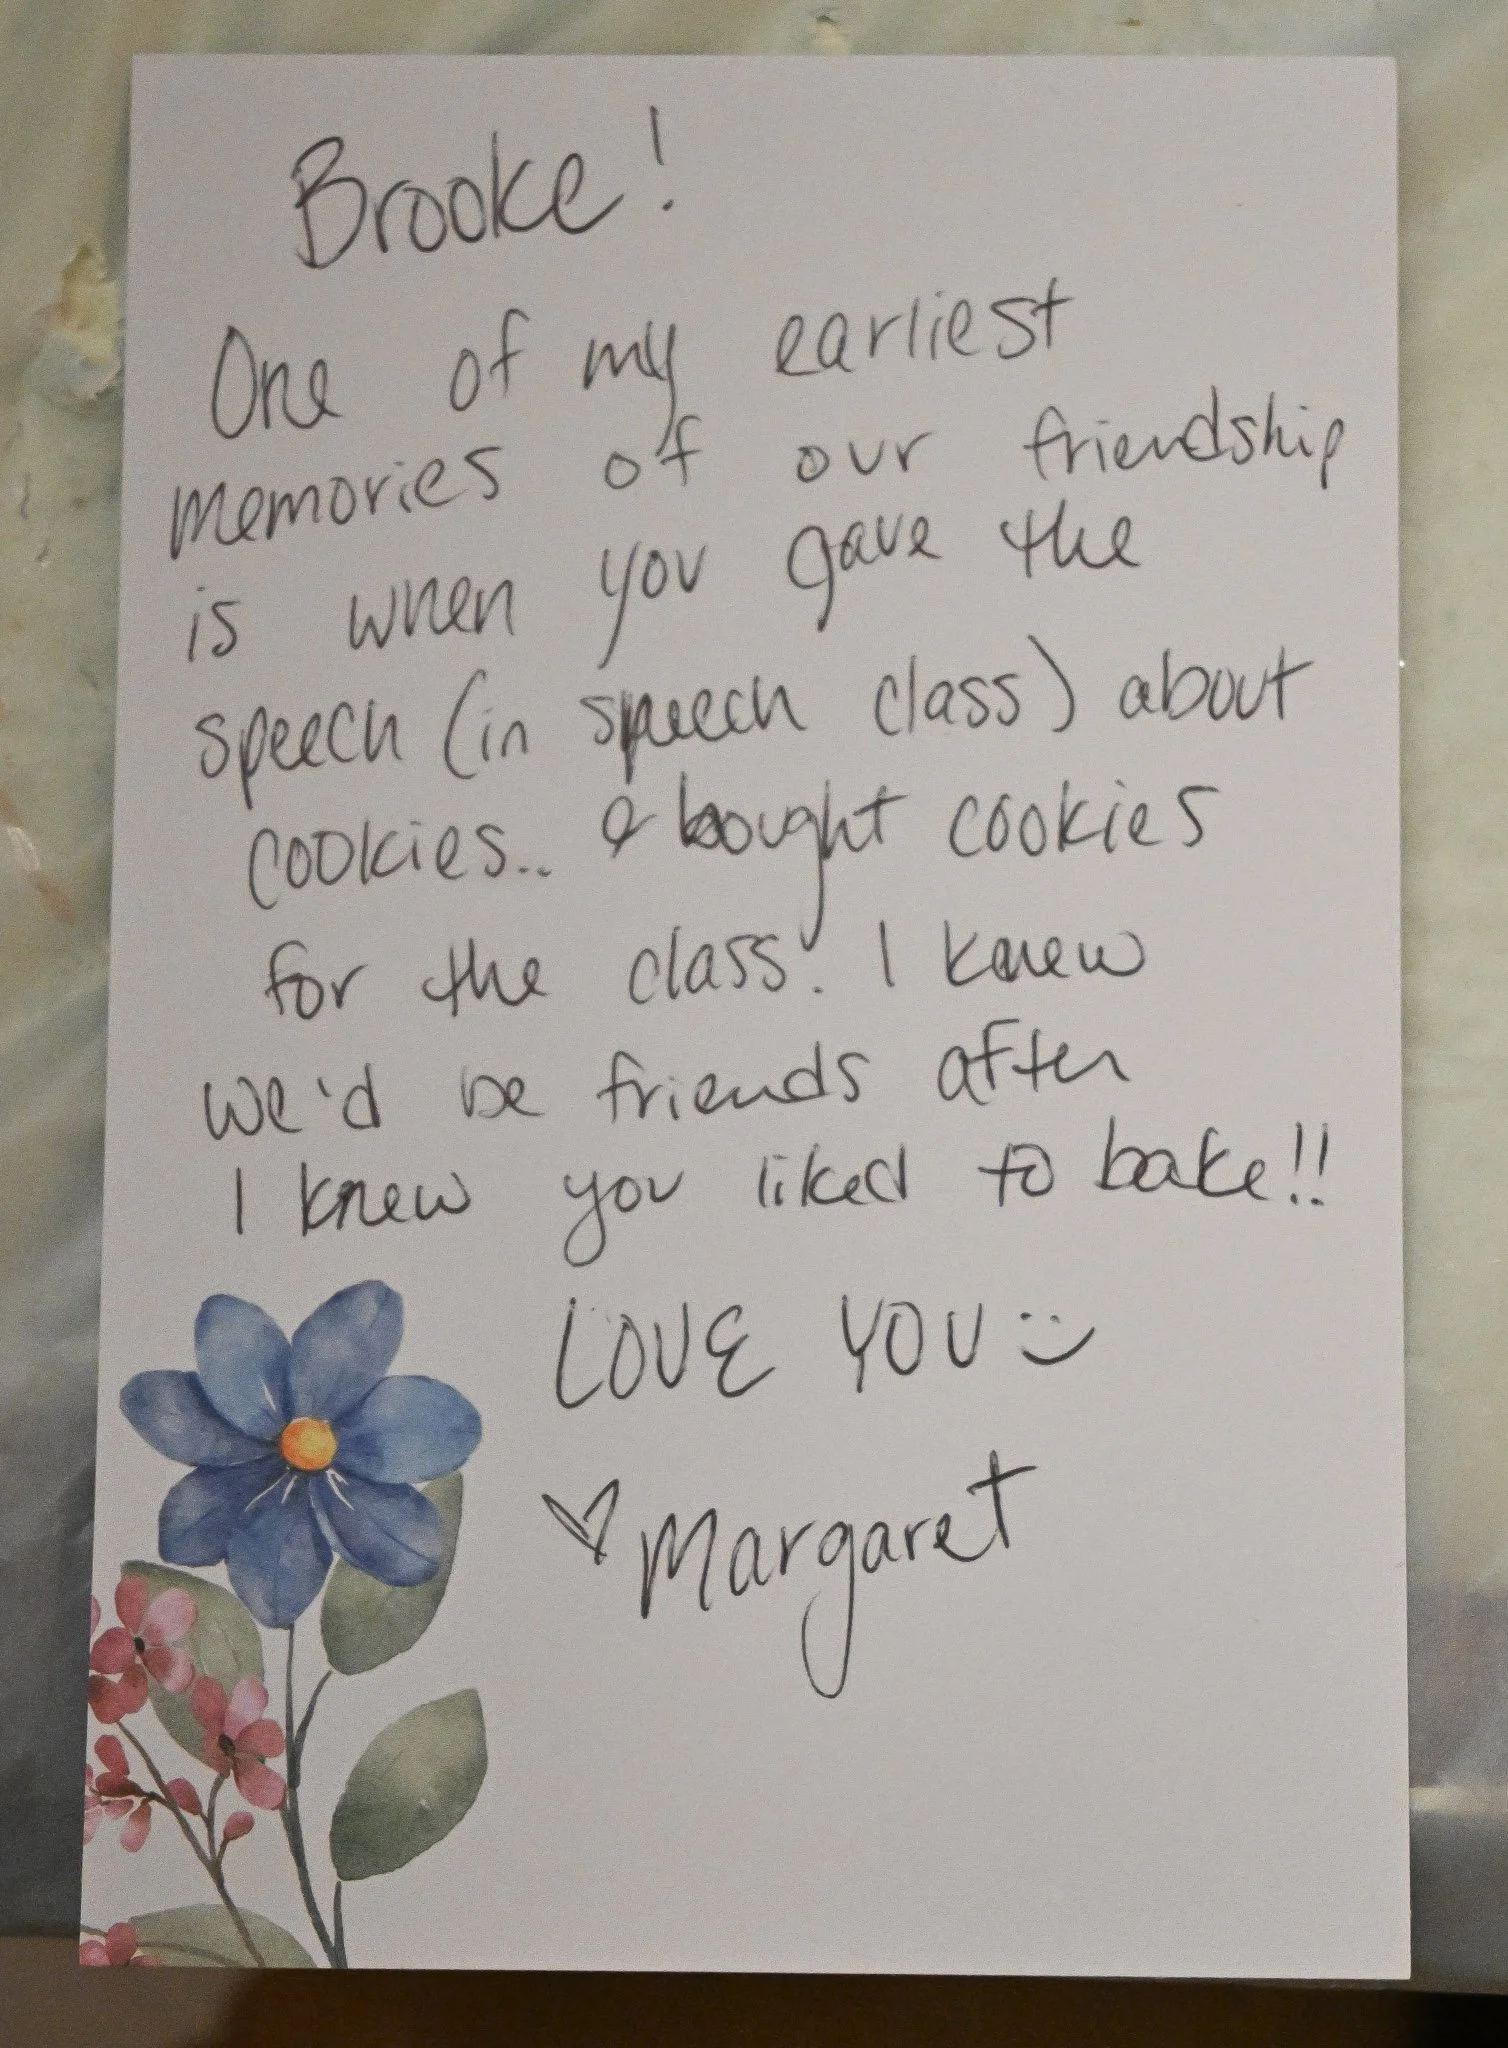 Brooke!
One of my earliest
memories of our friendship
is when you gave the
speech (in speech class) about
cookies.. & bought cookies
for the class. I knew
we'd be friends after
I knew you liked to bake!!
LOVE YOU :)
♡ Margaret